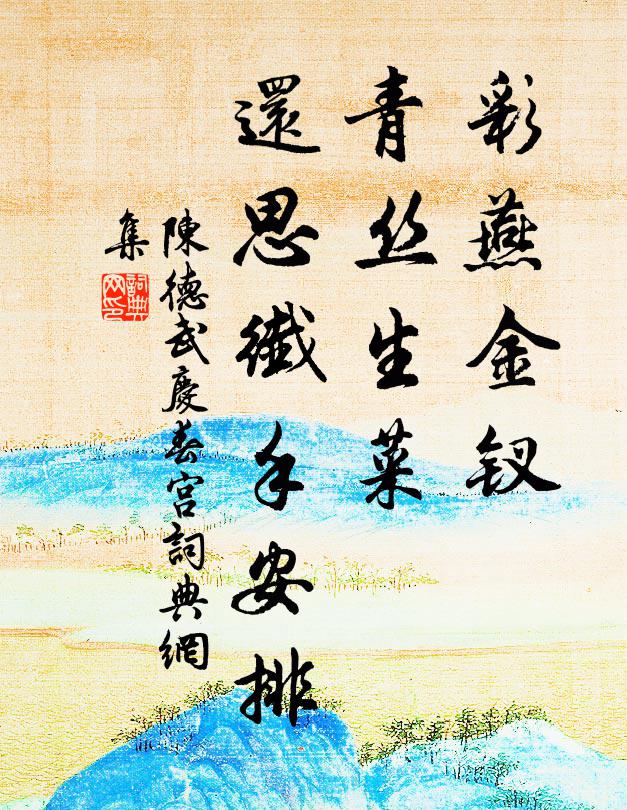 彩燕金钗
青丝生菜
還思纖手安排
陳德武慶春宮詞典網
集
詞典
网印